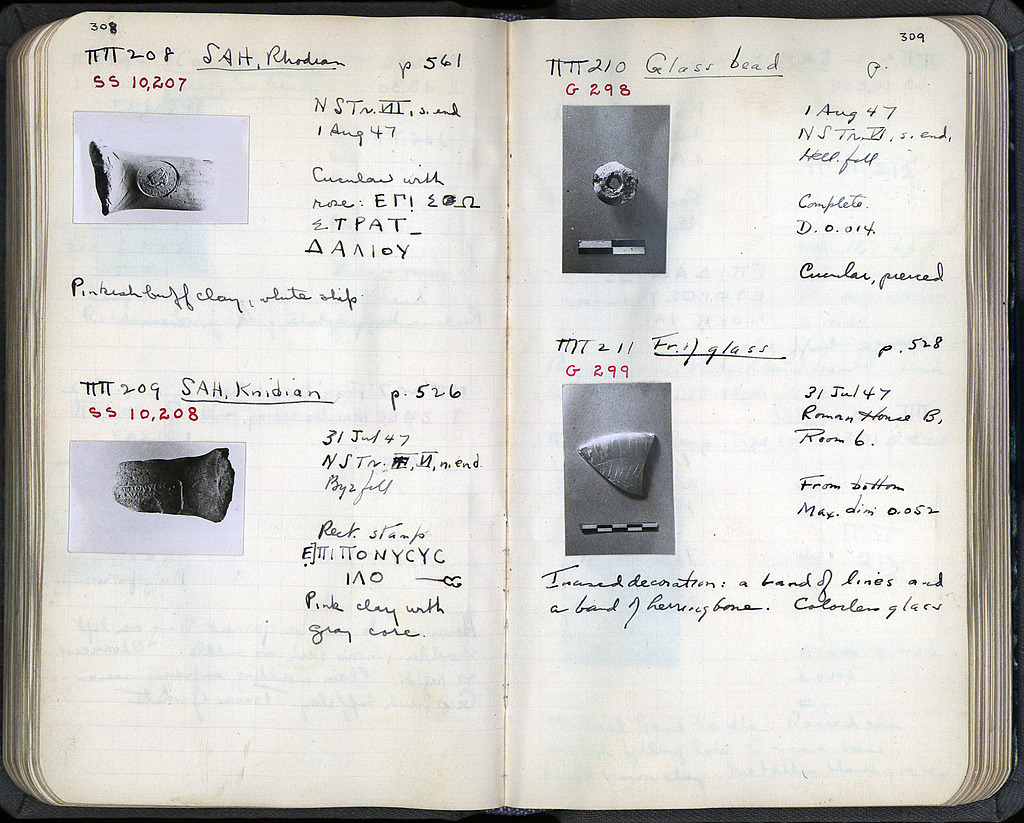 308
ΠΠ 208 SAH, Rhodian p 561
SS 10,207
NSTr. VII, s. end
1 Aug 47
Circular with
rose: ΕΠΙ ΣΩ
ΣΤΡΑΤ_
ΔΑΛΙΟΥ
Pinkish buff clay, white slip
ΠΠ 209 SAH, Knidian p. 526
SS 10,208
31 Jul 47
NSTr. VI, n. end
Byz fill
Rect. stamp
Ε]ΠΙΠΟΝΥCΥC
ΙΛΟ
Pink clay with
gray core.
309
ΠΠ 210 Glass bead p.
G 298
1 Aug 47
NSTr. VI, s. end,
Hell. fill
Complete.
D. 0.014.
Circular, pierced
ΠΠ 211 Fr. of glass p. 528
G 299
31 Jul 47
Roman House B,
Room 6.
From bottom
Max. dim 0.052
Incised decoration: a band of lines and
a band of herringbone. Colorless glass